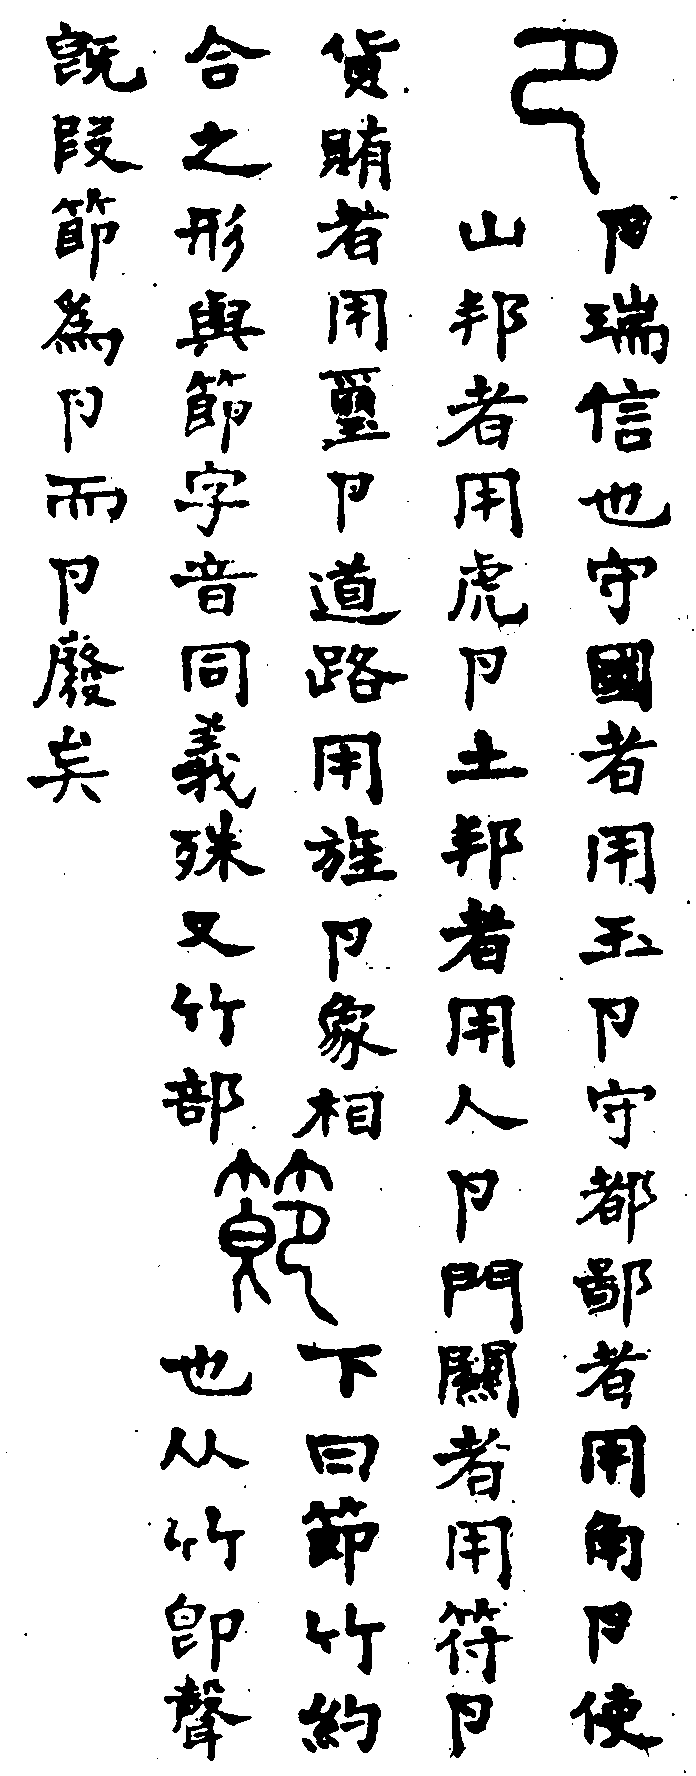 卪
卪瑞信也守國者用玉卪守都鄙者用角卪使
山邦者用虎卪土邦者用人卪門關者用符卪
貨賄者用璽卪道路用旌卪象相
合之形與節字音同義殊又竹部
節
下曰節竹約
也从竹卽聲
旣叚節爲卪而卪廢矣